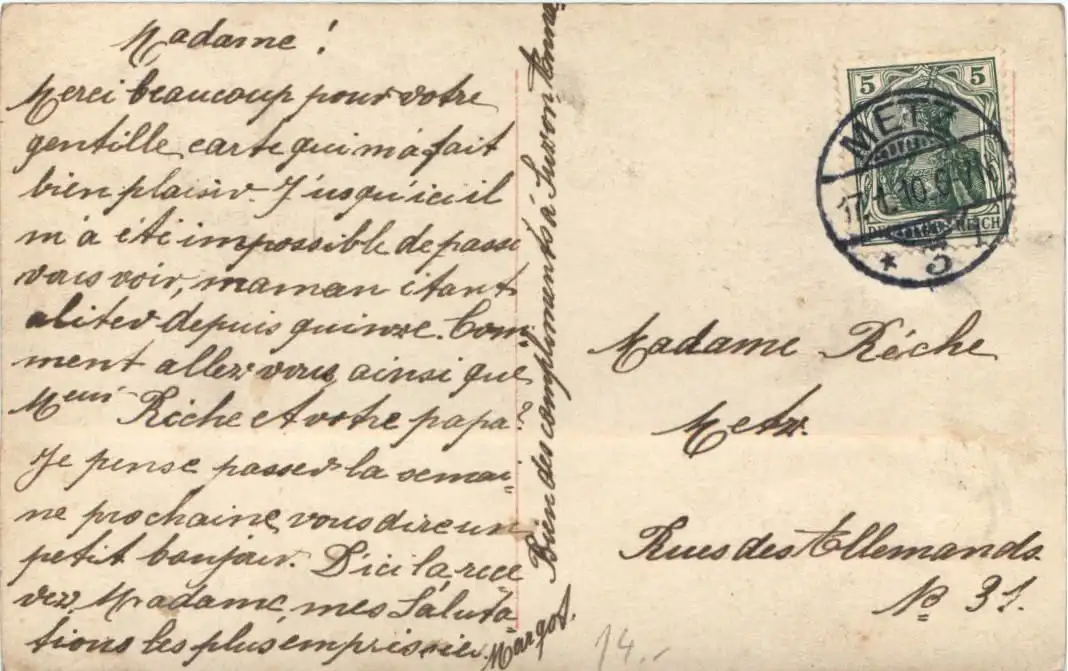 Madame!
Merci beaucoup pour votre
gentille carte qui m'a fait
bien plaisir. J'usqu'ici il
m'a été impossible de passe
vous voir, maman étant
aliter depuis quinze. Com-
ment allez vous ainsi que
Meur Réche et votre papa?
Je pense passer la semai-
ne prochaine vous dire un
petit bonjour. D'ici là rece
vez, Madame, mes Saluta
tions les plus empressées.
Margot.
Bien des compliments à Suzon
5 5
METZ
17.1.10.9-10
DEUTSCHES REICH
* 3
Madame Réche
Metz.
Rues des Allemands.
No 31.
14.-